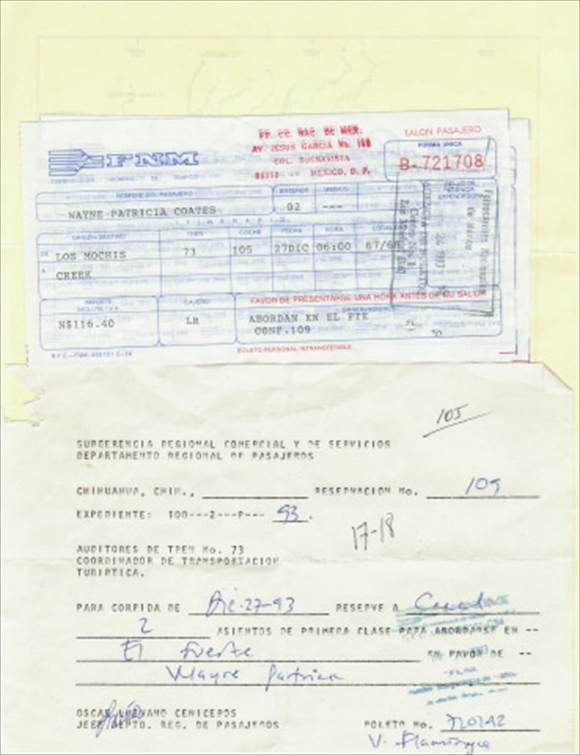 FF. CC. NAC. DE MEX.
AV. JESUS GARCIA No. 140
COL. BUENAVISTA
MEXICO, D. F.
TALON PASAJERO
FORMA UNICA
B-721708
FNM
NOMBRE DEL PASAJERO
ENTEROS MEDIOS
WAYNE PATRICIA COATES
02 ---
ITINERARIO
ORIGEN/DESTINO TREN COCHE FECHA HORA
DE LOS MOCHIS 73 105 27DIC 06:00 67/68
A CREEK
IMPORTE
CAJERO
FAVOR DE PRESENTARSE UNA HORA ANTES DE SU SALIDA
N$116.40
LR
ABORDAN EN EL FTE
CONF.109
BOLETO PERSONAL INTRANSFERIBLE
105
SUBGERENCIA REGIONAL COMERCIAL Y DE SERVICIOS
DEPARTAMENTO REGIONAL DE PASAJEROS
CHIHUAHUA, CHIH., RESERVACION No. 109
EXPEDIENTE: 100---2---P--- 93.
17-18
AUDITORES DE TREN No. 73
COORDINADOR DE TRANSPORTACION
TURISTICA.
PARA CORRIDA DE Dic-27-93 RESERVE A
2 ASIENTOS DE PRIMERA CLASE PARA ABORDARSE EN --
El Fuerte EN FAVOR DE --
Wayne Patricia
OSCAR CENICEROS
JEFE DEPTO. REG. DE PASAJEROS
BOLETO No.